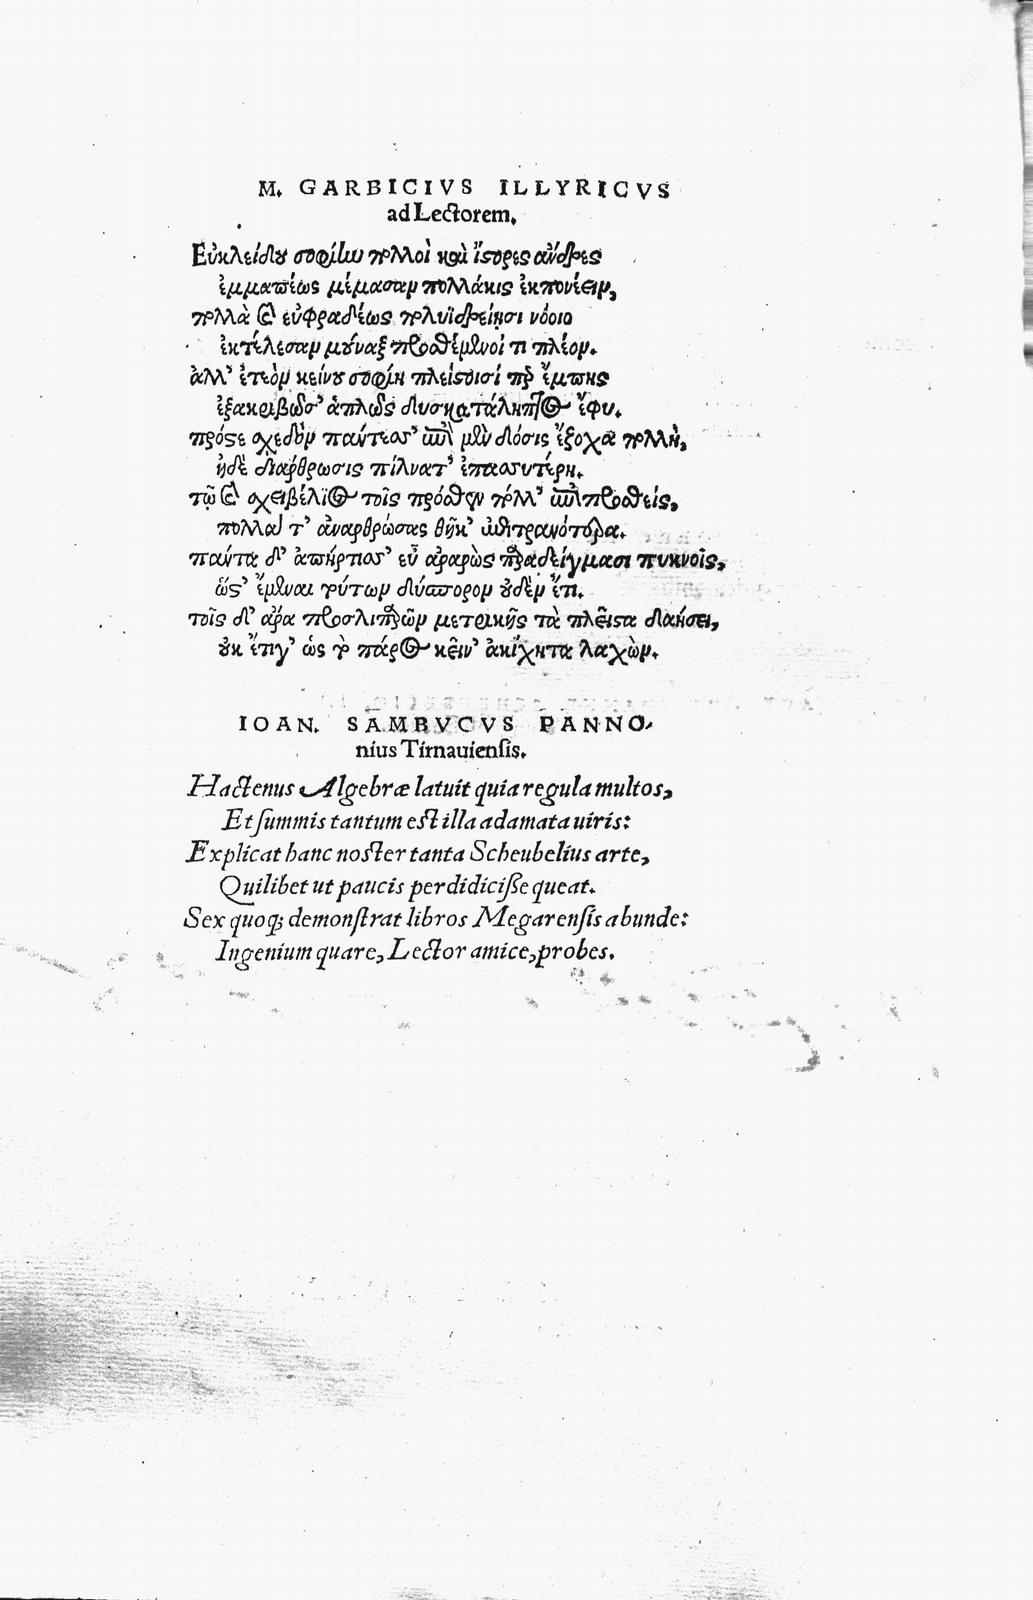 M. GARBICIVS ILLYRICVS
ad Lectorem.
Εὐκλείδου σοφίην πολλοὶ καὶ ἵστορες ἄνδρες
ἐμμαπέως μέμασαν πολλάκις ἐκπονέειν,
πολλὰ δ' εὐφραδέως πολυϊδρείῃσι νόοιο
ἐκτέλεσαν μούναξ προθέμενοί τι πλέον.
ἀλλ' ἐτεὸν κείνου σοφίη πλείστοισί περ ἔμπης
ἐξακριβῶσ' ἁπλῶς δυσκατάληπτος ἔφυ.
πρόσθε σχεδὸν πάντεσσ' μὲν δόσις ἔξοχα πολλὴ,
ἠδὲ διάρθρωσις πίλνατ' ἐπασσυτέρη.
τῷ δὲ σχειβέλιος τοῖς πρόσθεν πόλλ' ἐπιπροσθεὶς,
πολλά τ' ἀναρθρώσας θῆκε
πάντα δ' ἀπήρτισσ' εὖ ἀραρὼς παραδείγμασι πυκνοῖς,
ὥστ' ἔμεναι τούτων δύσπορον οὐδὲν ἔτι.
τοῖς δ' ἄρα προσλιπαρῶν μετρικῆς τὰ πλεῖστα διανήσει,
οὐκ ἔτι γ' ὡς τὸ πάρος κεῖν' ἀκίχητα λαχὼν.
IOAN. SAMBVCVS PANNO-
nius Tirnauiensis.
Hactenus Algebræ latuit quia regula multos,
Et summis tantum est illa adamata uiris:
Explicat hanc noster tanta Scheubelius arte,
Quilibet ut paucis perdidicisse queat.
Sex quoq; demonstrat libros Megarensis abunde:
Ingenium quare, Lector amice, probes.